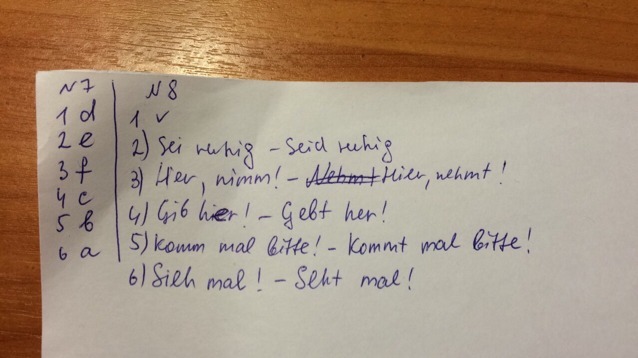 N7
1 d
2 e
3 f
4 c
5 b
6 a
N8
1 v
2) Sei ruhig – Seid ruhig
3) Hier, nimm! – Nehmt Hier, nehmt!
4) Gib hier! – Gebt her!
5) Komm mal bitte! – Kommt mal bitte!
6) Sieh mal! – Seht mal!